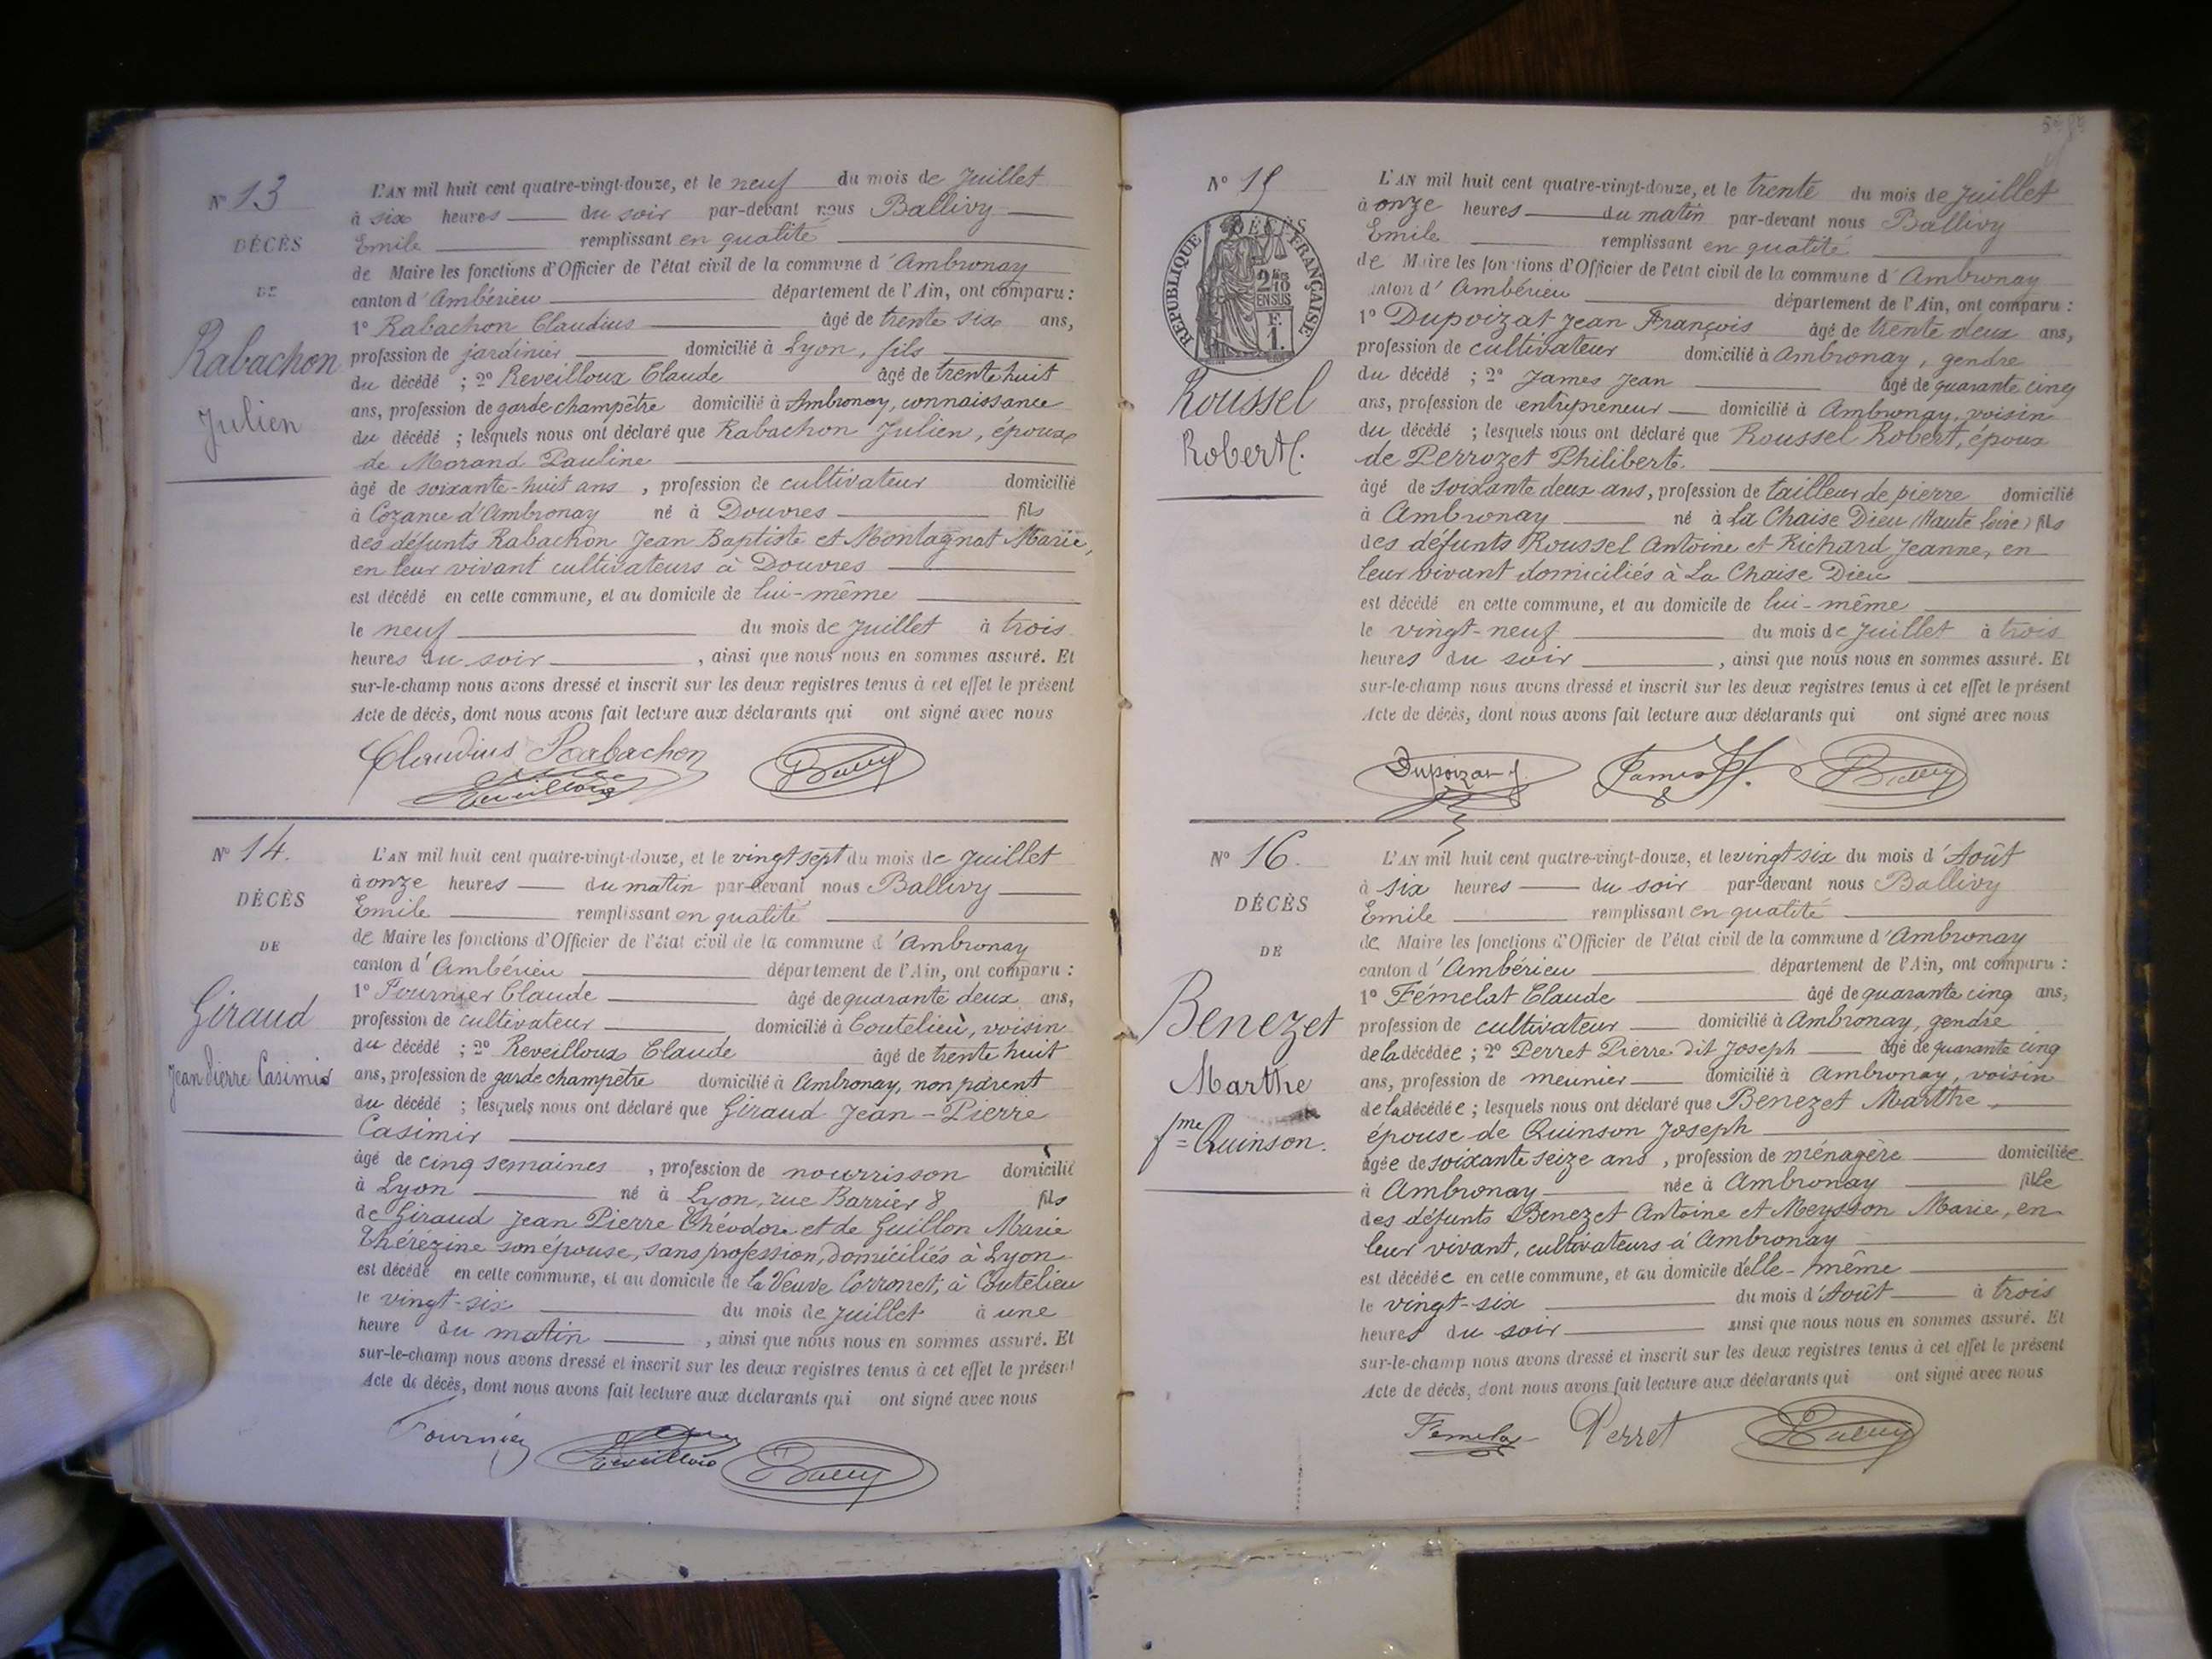 N° 13
DÉCÈS
DE
Rabachon
Julien
L'AN mil huit cent quatre-vingt-douze, et le neuf du mois de Juillet
à six heures du soir par-devant nous Ballivy
Emile remplissant en qualité
de Maire les fonctions d'Officier de l'état civil de la commune d'Ambronay
canton d'Ambérieu département de l'Ain, ont comparu :
1° Rabachon Claudius âgé de trente six ans,
profession de jardinier domicilié à Lyon, fils
du décédé ; 2° Reveilloux Claude âgé de trente huit
ans, profession de garde champêtre domicilié à Ambronay, connaissance
du décédé ; lesquels nous ont déclaré que Rabachon Julien, époux
de Morand Pauline
âgé de soixante-huit ans, profession de cultivateur domicilié
à Cozance d'Ambronay né à Douvres fils
des défunts Rabachon Jean Baptiste et Montagnat Marie,
en leur vivant cultivateurs à Douvres
est décédé en cette commune, et au domicile de lui-même
le neuf du mois de Juillet à trois
heures du soir, ainsi que nous nous en sommes assuré. Et
sur-le-champ nous avons dressé et inscrit sur les deux registres tenus à cet effet le présent
Acte de décès, dont nous avons fait lecture aux déclarants qui ont signé avec nous
Claudius Rabachon
N° 14.
DÉCÈS
DE
Giraud
Jean Pierre Casimir
L'AN mil huit cent quatre-vingt-douze, et le vingt sept du mois de Juillet
à onze heures du matin par-devant nous Ballivy
Emile remplissant en qualité
de Maire les fonctions d'Officier de l'état civil de la commune d'Ambronay
canton d'Ambérieu département de l'Ain, ont comparu :
1° Fournier Claude âgé de quarante deux ans,
profession de cultivateur domicilié à Coutelieu, voisin
du décédé ; 2° Reveilloux Claude âgé de trente huit
ans, profession de garde champêtre domicilié à Ambronay, non parent
du décédé ; lesquels nous ont déclaré que Giraud Jean-Pierre
Casimir
âgé de cinq semaines, profession de nourrisson domicilié
à Lyon né à Lyon, rue Barrier 8 fils
de Giraud Jean Pierre Théodore et de Guillon Marie
Thérézine son épouse, sans profession, domiciliés à Lyon
est décédé en cette commune, et au domicile de la Veuve Corronet, à Coutelieu
le vingt-six du mois de Juillet à une
heure du matin, ainsi que nous nous en sommes assuré. Et
sur-le-champ nous avons dressé et inscrit sur les deux registres tenus à cet effet le présent
Acte de décès, dont nous avons fait lecture aux déclarants qui ont signé avec nous
Fournier
N° 15
DÉCÈS
RÉPUBLIQUE FRANÇAISE
2/10
EN SUS
F.
1.
Roussel
Robert
L'AN mil huit cent quatre-vingt-douze, et le trente du mois de Juillet
à onze heures du matin par-devant nous Ballivy
Emile remplissant en qualité
de Maire les fonctions d'Officier de l'état civil de la commune d'Ambronay
canton d'Ambérieu département de l'Ain, ont comparu :
1° Dupoizat Jean François âgé de trente deux ans,
profession de cultivateur domicilié à Ambronay, gendre
du décédé ; 2° James Jean âgé de quarante cinq
ans, profession de entrepreneur domicilié à Ambronay, voisin
du décédé ; lesquels nous ont déclaré que Roussel Robert, époux
de Perrozet Philiberte.
âgé de soixante deux ans, profession de tailleur de pierre domicilié
à Ambronay né à La Chaise Dieu (Haute Loire) fils
des défunts Roussel Antoine et Richard Jeanne, en
leur vivant domiciliés à La Chaise Dieu
est décédé en cette commune, et au domicile de lui-même
le vingt-neuf du mois de Juillet à trois
heures du soir, ainsi que nous nous en sommes assuré. Et
sur-le-champ nous avons dressé et inscrit sur les deux registres tenus à cet effet le présent
Acte de décès, dont nous avons fait lecture aux déclarants qui ont signé avec nous
Dupoizat J. James
N° 16.
DÉCÈS
DE
Benezet
Marthe
fme Quinson.
L'AN mil huit cent quatre-vingt-douze, et le vingt six du mois d'Août
à six heures du soir par-devant nous Ballivy
Emile remplissant en qualité
de Maire les fonctions d'Officier de l'état civil de la commune d'Ambronay
canton d'Ambérieu département de l'Ain, ont comparu :
1° Fémelat Claude âgé de quarante cinq ans,
profession de cultivateur domicilié à Ambronay, gendre
de la décédée ; 2° Perret Pierre dit Joseph âgé de quarante cinq
ans, profession de meunier domicilié à Ambronay, voisin
de la décédée ; lesquels nous ont déclaré que Benezet Marthe,
épouse de Quinson Joseph
âgée de soixante seize ans, profession de ménagère domiciliée
à Ambronay née à Ambronay fille
des défunts Benezet Antoine et Meysson Marie, en
leur vivant, cultivateurs à Ambronay
est décédée en cette commune, et au domicile d'elle-même
le vingt-six du mois d'Août à trois
heures du soir ainsi que nous nous en sommes assuré. Et
sur-le-champ nous avons dressé et inscrit sur les deux registres tenus à cet effet le présent
Acte de décès, dont nous avons fait lecture aux déclarants qui ont signé avec nous
Femelat Perret